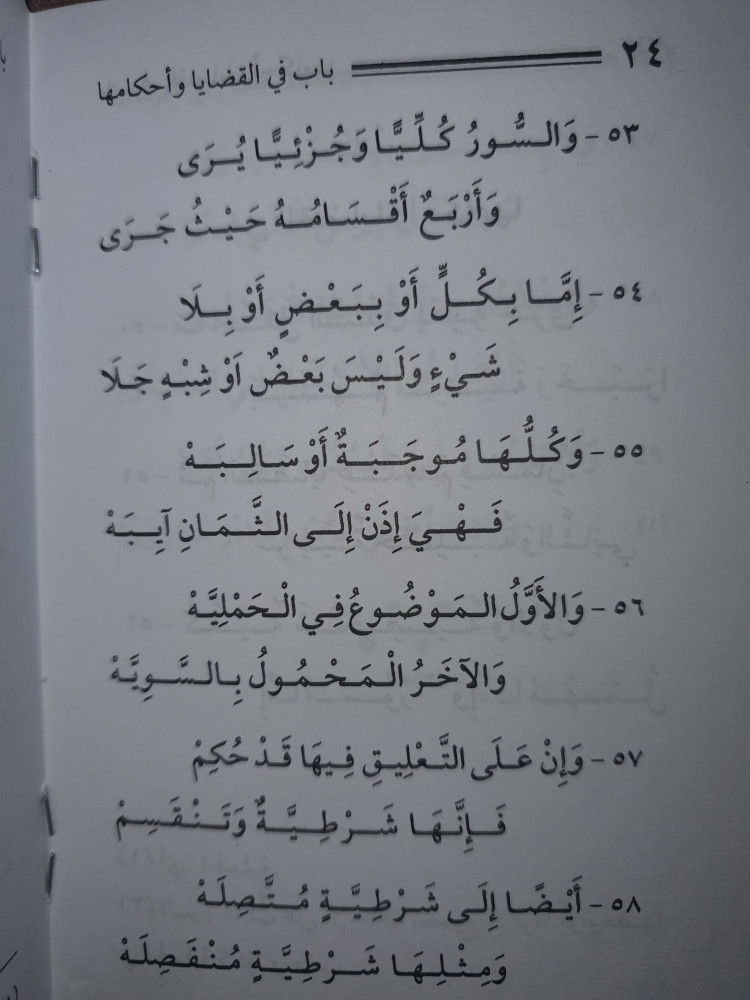 ٢٤ باب في القضايا وأحكامها
٥٣ - وَالسُّورُ كُلِّيًّا وَجُزْئِيًّا يُرَى
وَأَرْبَعٌ أَقْسَامُهُ حَيْثُ جَرَى
٥٤ - إِمَّا بِكُلٍّ أَوْ بِبَعْضٍ أَوْ بِلَا
شَيْءٍ وَلَيْسَ بَعْضٌ اَوْ شِبْهٍ جَلَا
٥٥ - وَكُلُّهَا مُوجَبَةٌ أَوْ سَالِبَهْ
فَهْيَ إِذَنْ إِلَى الثَّمَانِ آيِبَهْ
٥٦ - وَالأَوَّلُ الْمَوْضُوعُ فِي الْحَمْلِيَّهْ
وَالآخَرُ الْمَحْمُولُ بِالسَّوِيَّهْ
٥٧ - وَإِنْ عَلَى التَّعْلِيقِ فِيهَا قَدْ حُكِمْ
فَإِنَّهَا شَرْطِيَّةٌ وَتَنْقَسِمْ
٥٨ - أَيْضًا إِلَى شَرْطِيَّةٍ مُتَّصِلَهْ
وَمِثْلِهَا شَرْطِيَّةٍ مُنْفَصِلَهْ